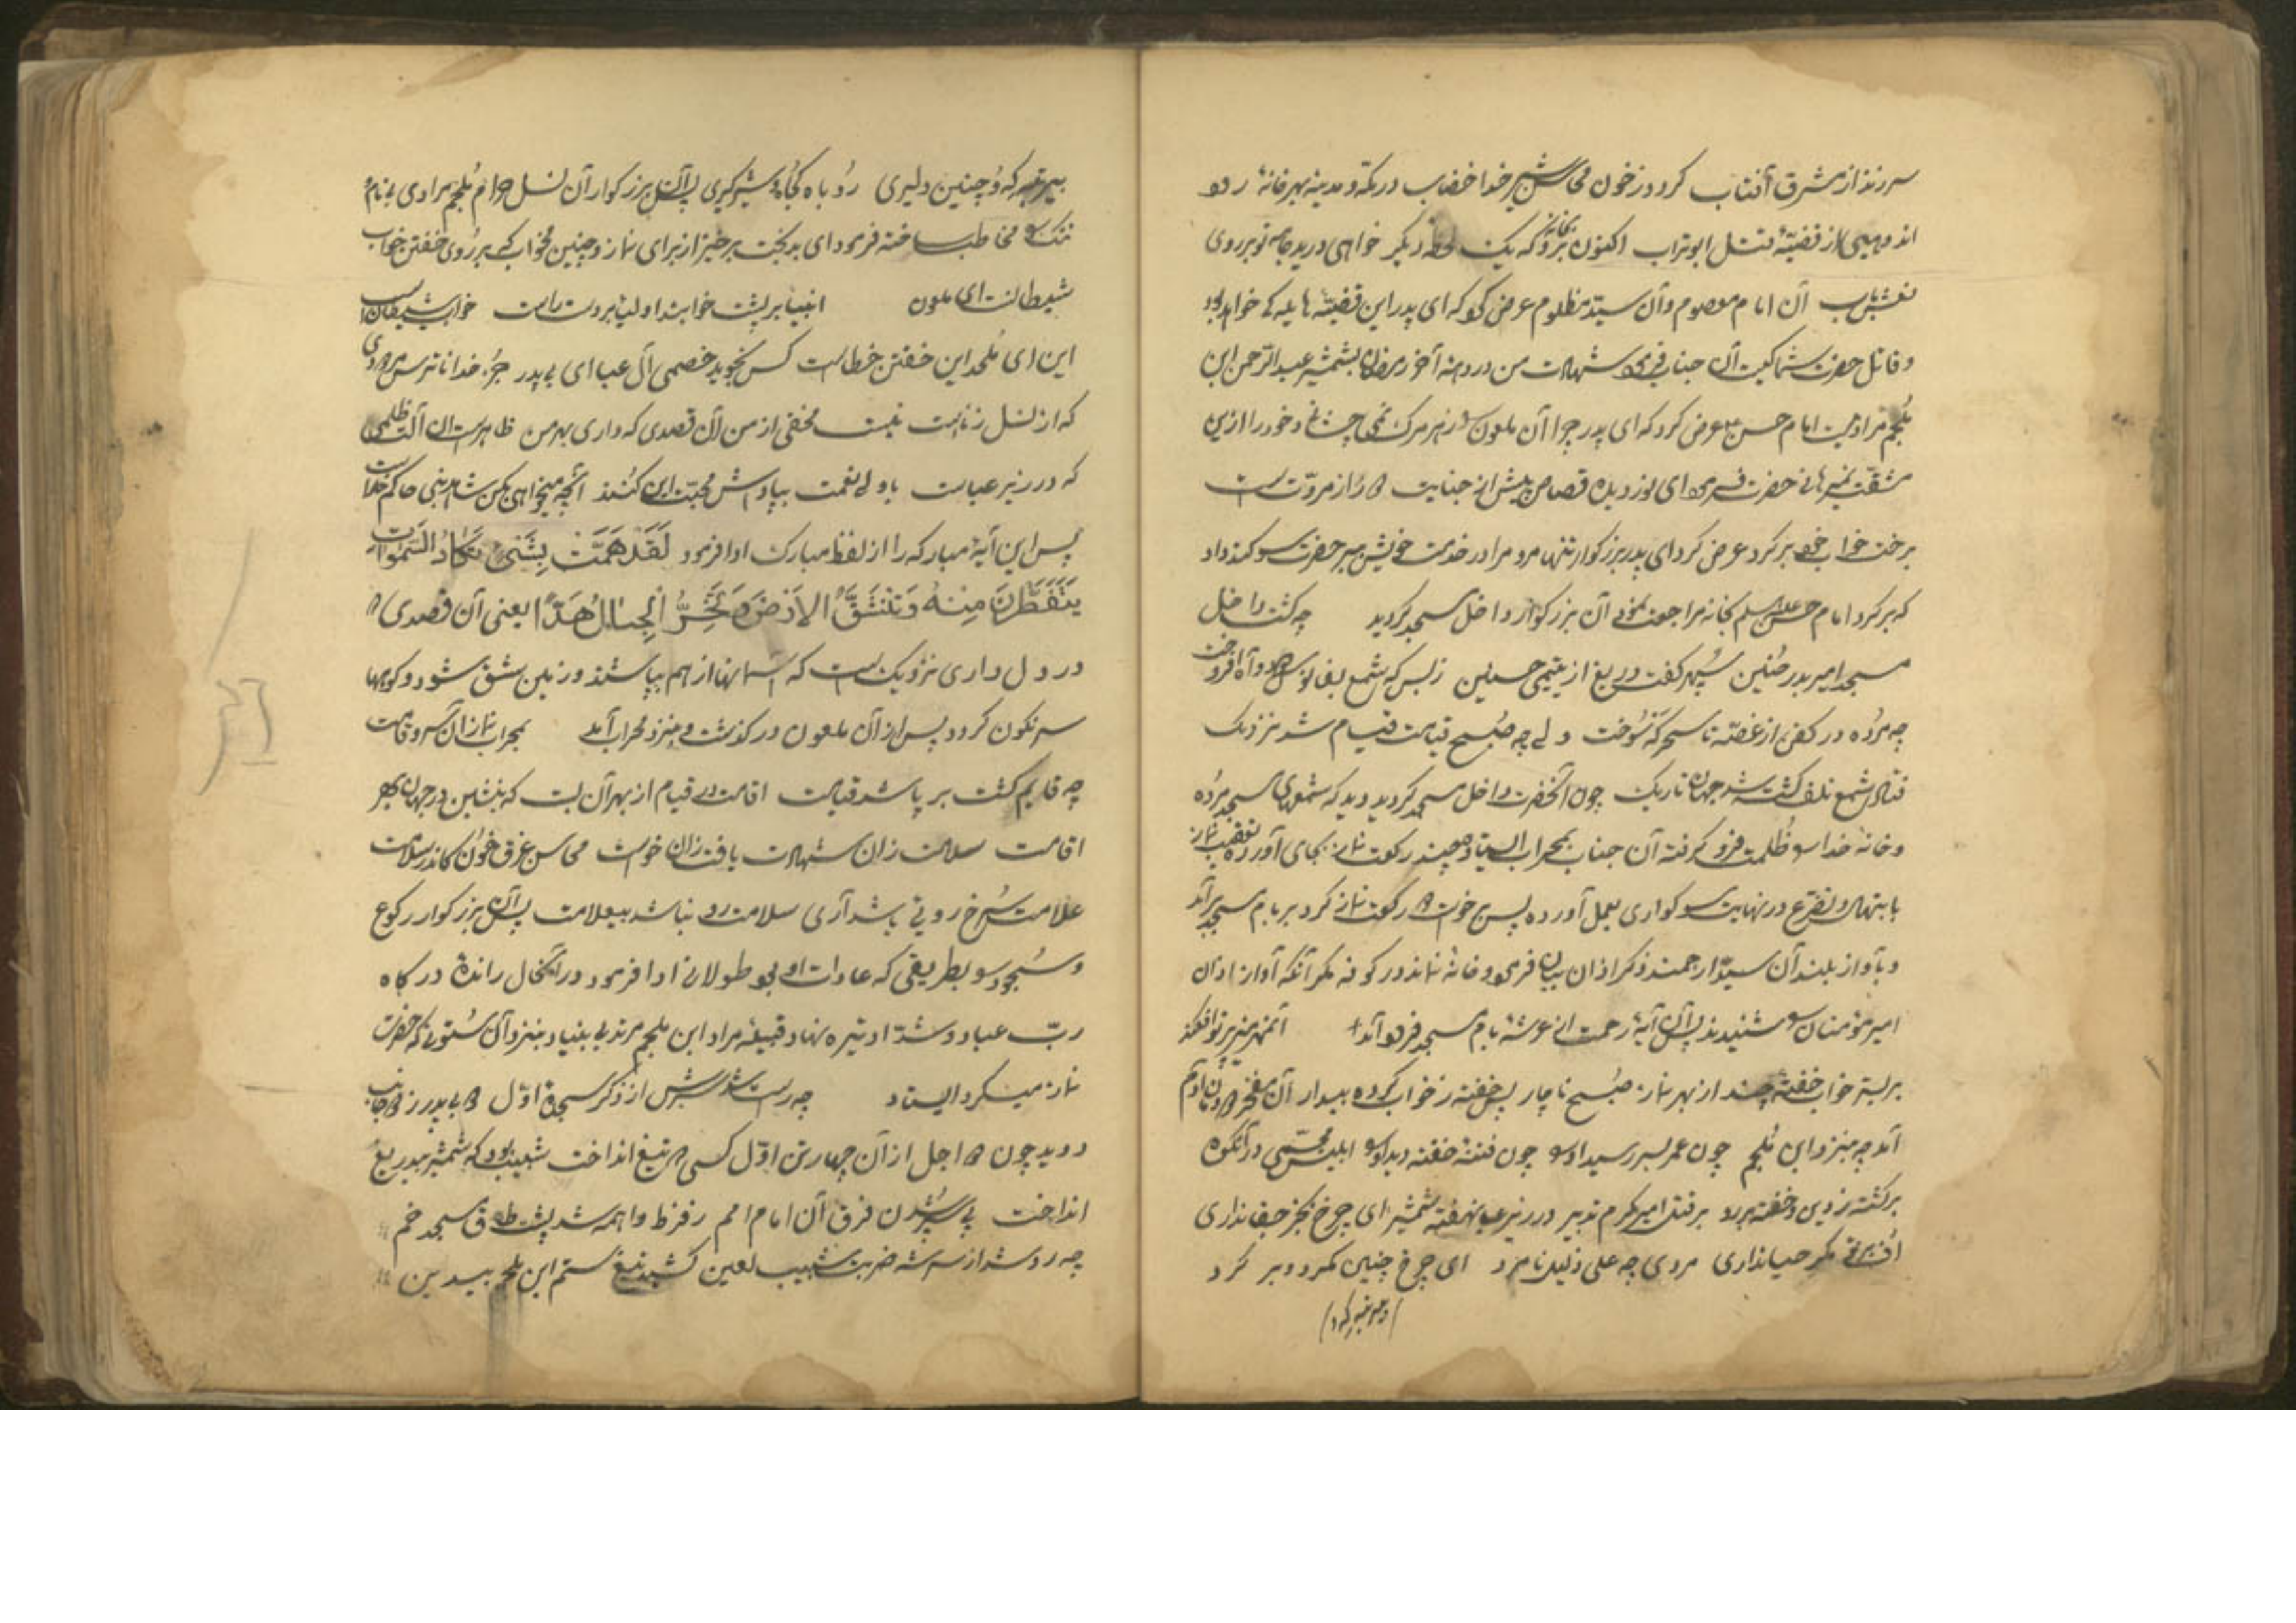 سر زند از مشرق آفتاب کردد ز خون محاسن شیر خدا خضاب در مکه و مدینه بهر خانه رو
از قضیّهٔ قتل ابوتراب اکنون برو بخانه که یک لحظه دیگر خواهی درید جامه تو بر روی
آن امام معصوم و آن سیّد مظلوم عرض کرد که ای پدر این قضیّه هایله کی خواهد بود
و قاتل حضرت شما کیست آن جناب فرمود شهادت من در دهه آخر رمضان بشمشیر عبدالرّحمن ابن
ملجم مرادیست امام حسن عرض کرد که ای پدر چرا آن ملعون را زهر مرگ نمی چشانی و خود را ازین
مشقّت نمیرهانی حضرت فرمود ای نور دیده قصاص پیش از جنایت دور از مروّت است
برخت خواب خود برگرد عرض کرد ای پدر بزرکوار تنها مرو مرا در خدمت خویش ببر حضرت سوکند داد
که برکرد امام حسن علیه السلم بخانه مراجعت نمود آن بزرکوار داخل مسجد کردید چه کشت داخل
مسجد امیر بدر حنین سپهر کفت دریغ از یتیمی حسنین ز بس که شمع بفانوس
چه مرده در کفن از غصّه تا سحر که سوخت ولی چه صبح قیامت قیام شد نزدیک
شمع تلف کشته شد جهان تاریک چون آنحضرت داخل مسجد کردید دید که شمعهای مسجد مرده
و خانه خدا را ظلمت فرو کرفته آن جناب بمحراب ایستاد چند رکعت نماز بجای آورده تعقیب نماز
بابتهال و تضرع در نهایت سوکواری بعمل آورده پس برخواست دو رکعت نماز کرد بر بام مسجد برآمد
و بآواز بلند آن سیّد ارجمند ذکر اذان بیان فرمود و خانهٔ نماند در کوفه مکر آنکه آواز اذان
امیر مؤمنان را شنیدند پس آن آیهٔ رحمت از عرشهٔ بام مسجد فرود آمد
بر بستر خواب خفته چند از بهر نماز صبح ناچار هر خفته ز خواب کرده بیدار
آمد چه بنزد ابن ملجم چون عمر بسر رسید او را چون فتنهٔ خفته دید او را ابلیس مجسّمی در آنکوه
برکشته ز دین و خفته بر رو بر قتل امیر کرم تدبیر در زیر عبا نهفته شمشیر ای چرخ بجز جفا نداری
مکر حیا نداری مردی چه علی ذلیل نامرد ای چرخ چنین کردد و بر کرد
که و چنین دلیری روباه کجا و شیر کیری پس آن بزرکوار آن نسل حرام ملجم مرادی بی نام و
ننک را مخاطب ساخته فرمود ای بدبخت برخیز از برای نماز و چنین مخواب که بر روی خفتن خواب
شیطانست ای ملعون انبیا بر پشت خوابند اولیا بر دست راست خواب شیطان است
این ای ملحد این خفتن خطاست کس نجوید خصمی آل عبا ای بی پدر جز خدا ناترس مردودی
که از نسل زناست نیست مخفی از من آن قصدی که داری بهر من ظاهرست آن آلت ظلمی
که در زیر عباست با ولی نعمت بپاداش محبّت این کنند آنچه میخواهی بکن
پس این آیهٔ مبارکه را از لفظ مبارک ادا فرمود لَقَدْ هَمَمْتَ بِشَیْءٍ تَكَادُ السَّمٰوَاتُ
يَتَفَطَّرْنَ مِنْهُ وَتَنْشَقُّ الْاَرْضُ وَتَخِرُّ الْجِبَالُ هَدًّا یعنی آن قصدی که
در دل داری نزدیک است که آسمانها از هم بپاشند و زمین شق شود و کوهها
سرنکون کردد پس از آن ملعون در کذشت و بنزد محراب آمد
چه قایم کشت بر پا شد قیامت اقامت در قیام از بهر آن بست که بنشین در جهان
اقامت سلامت زان شهادت یافت زان خواست محاسن غرق خون
علامت سرخ رویی باشد آری سلامت رو نباشد بیعلامت پس آن بزرکوار رکوع
و سجود را بطریقی که عادت او بود طولانی ادا فرمود در آنحال راندهٔ درکاه
ربّ عباد و شدّاد تیره نهاد قبیلهٔ مراد ابن ملجم مرتد بی بنیاد بنزد آن ستونی که حضرت
نماز میکرد ایستاد چه راست شد سرش از ذکر سجدهٔ اوّل
دوید چون اجل از آن چهار تن اوّل کسی که تیغ انداخت شبیب بود که شمشیر بیدریغ
انداخت پی فرق آن امام امم ز فرط واهمه شد طاق مسجد خم
چه رد شد از سر شه ضربت شبیب لعین کشید تیغ ستم ابن ملجم بیدین